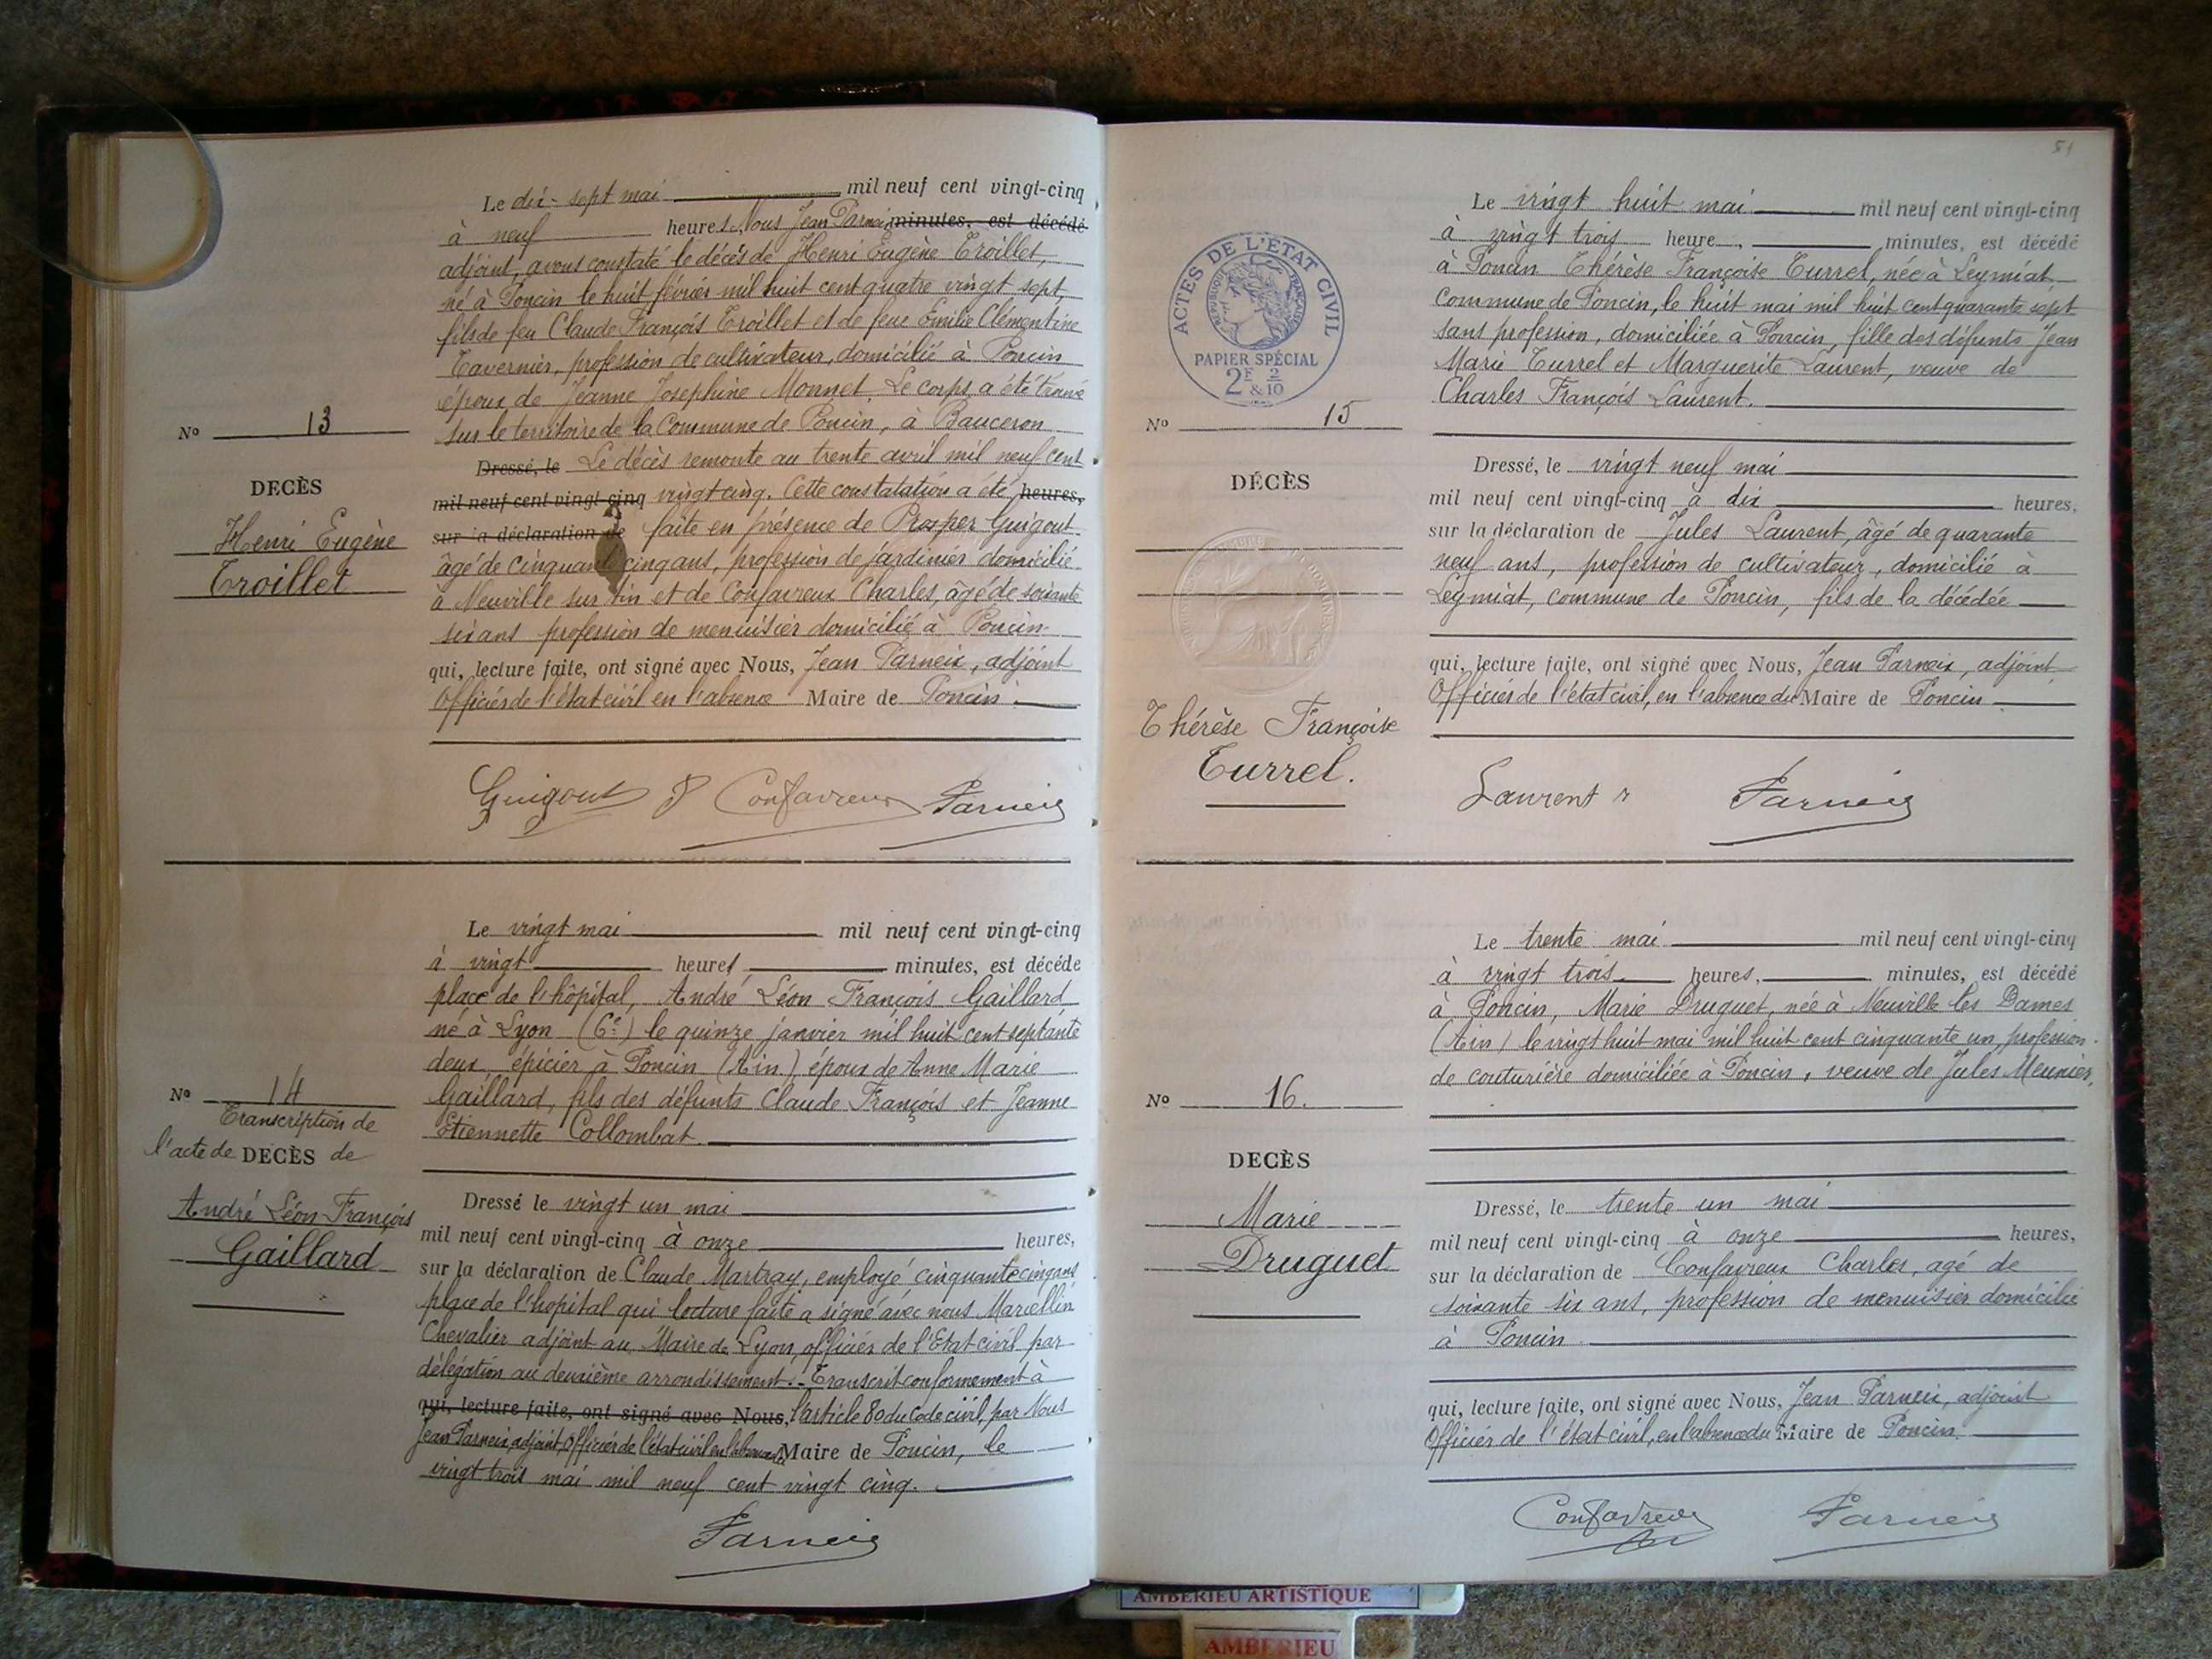 Le dix-sept mai mil neuf cent vingt-cinq
à neuf heures, Nous Jean Parneix minutes, est décédé
adjoint, avons constaté le décès de Henri Eugène Troillet,
né à Poncin le huit février mil huit cent quatre vingt sept,
fils de feu Claude François Troillet et de feue Emilie Clémentine
Tavernier, profession de cultivateur, domicilié à Poncin
époux de Jeanne Josephine Monnet. Le corps a été trouvé
sur le territoire de la Commune de Poncin, à Bauceron
Nº 13
Dressé, le Le décès remonte au trente avril mil neuf cent
mil neuf cent vingt-cinq vingt cinq. Cette constatation a été heures,
sur la déclaration de faite en présence de Prosper Guigout
âgé de cinquante cinq ans, profession de jardinier domicilié
à Neuville sur Ain et de Confavreux Charles, âgé de soixante
six ans profession de menuisier domicilié à Poncin
qui, lecture faite, ont signé avec Nous, Jean Parneix, adjoint
Officier de l'état civil en l'absence Maire de Poncin.
DECÈS
Henri Eugène
Troillet
Guigout P Confavreux Parneix
Le vingt mai mil neuf cent vingt-cinq
à vingt heures, minutes, est décédé
place de l'hôpital, André Léon François Gaillard
né à Lyon (6e) le quinze janvier mil huit cent septante
deux, épicier à Poncin (Ain) époux de Anne Marie
Gaillard, fils des défunts Claude François et Jeanne
Etiennette Collombat.
Nº 14
Transcription de
l'acte de DECÈS de
André Léon François
Gaillard
Dressé le vingt un mai
mil neuf cent vingt-cinq à onze heures,
sur la déclaration de Claude Martray, employé cinquante cinq ans
place de l'hopital qui lecture faite a signé avec nous Marcellin
Chevalier adjoint au Maire de Lyon, officier de l'Etat civil par
délégation au deuxième arrondissement. Transcrit conformement à
qui, lecture faite, ont signé avec Nous, l'article 80 du Code civil, par Nous
Jean Parneix, adjoint, Officier de l'état civil en l'absence du Maire de Poncin, le
vingt trois mai mil neuf cent vingt cinq.
Parneix
51
Le vingt huit mai mil neuf cent vingt-cinq
à vingt trois heure, minutes, est décédé
à Poncin Thérèse Françoise Turrel, née à Leymiat,
commune de Poncin, le huit mai mil huit cent quarante sept
sans profession, domiciliée à Poncin, fille des défunts Jean
Marie Turrel et Marguerite Laurent, veuve de
Charles François Laurent.
ACTES DE L'ÉTAT CIVIL
RÉPUBLIQUE FRANÇAISE
PAPIER SPÉCIAL
2F & 2/10
Nº 15
DÉCÈS
Thérèse Françoise
Turrel.
Dressé, le vingt neuf mai
mil neuf cent vingt-cinq à dix heures,
sur la déclaration de Jules Laurent, âgé de quarante
neuf ans, profession de cultivateur, domicilié à
Leymiat, commune de Poncin, fils de la décédée
qui, lecture faite, ont signé avec Nous, Jean Parneix, adjoint,
Officier de l'état civil, en l'absence du Maire de Poncin
Laurent Parneix
Le trente mai mil neuf cent vingt-cinq
à vingt trois heures, minutes, est décédé
à Poncin, Marie Druguet, née à Neuville les Dames
(Ain) le vingt huit mai mil huit cent cinquante un, profession
de couturière domiciliée à Poncin, veuve de Jules Meunier,
Nº 16.
DECÈS
Marie
Druguet
Dressé, le trente un mai
mil neuf cent vingt-cinq à onze heures,
sur la déclaration de Confavreux Charles, agé de
soixante six ans, profession de menuisier domicilié
à Poncin
qui, lecture faite, ont signé avec Nous, Jean Parneix, adjoint
Officier de l'état civil, en l'absence du Maire de Poncin.
Confavreux Parneix
AMBERIEU ARTISTIQUE
AMBERIEU